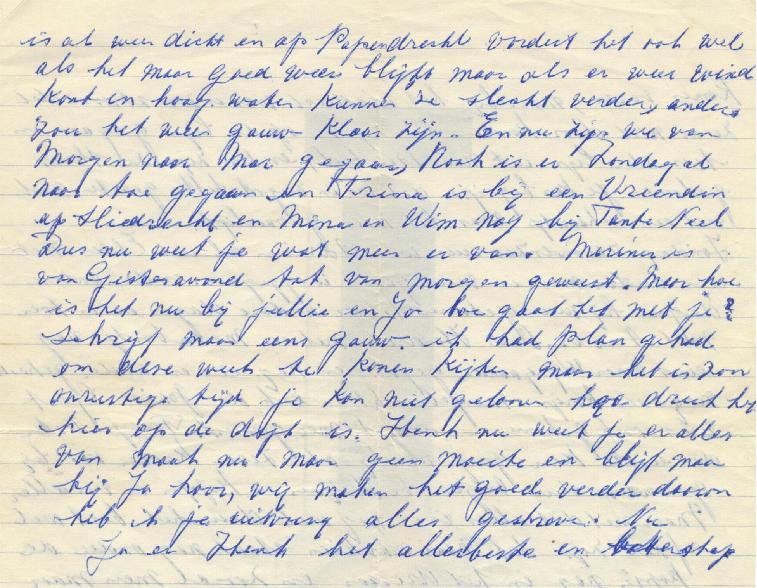 is al weer dicht en op Papendrecht vordert het ook wel
als het maar goed weer blijft maar als er weer wind
komt en hoog water kunnen ze slecht verder, anders
zou het weer gauw klaar zijn. En nu zijn we van
Morgen naar Mar gegaan, Noah is er Zondag al
naar toe gegaan en Trina is bij een Vriendin
op Sliedrecht en Mina en Wim nog bij Tante Neel
Dus nu weet je wat meer er van. Marinus is
van Gisteravond tot van morgen geweest. Maar hoe
is het nu bij jullie en Jo hoe gaat het met je?
schrijf maar eens gauw. ik had plan gehad
om deze week te konen kijken maar het is zon
onrustige tijd je kan niet gelooven hoe druk hij
hier op de dijk is. Henk nu weet je er alles
van maak nu maar geen moeite en blijf maar
bij Jo hoor, wij maken het goed verder daarom
heb ik je uitvoerig alles geschreven. Nu
Jo en Henk het allerbeste en beterschap